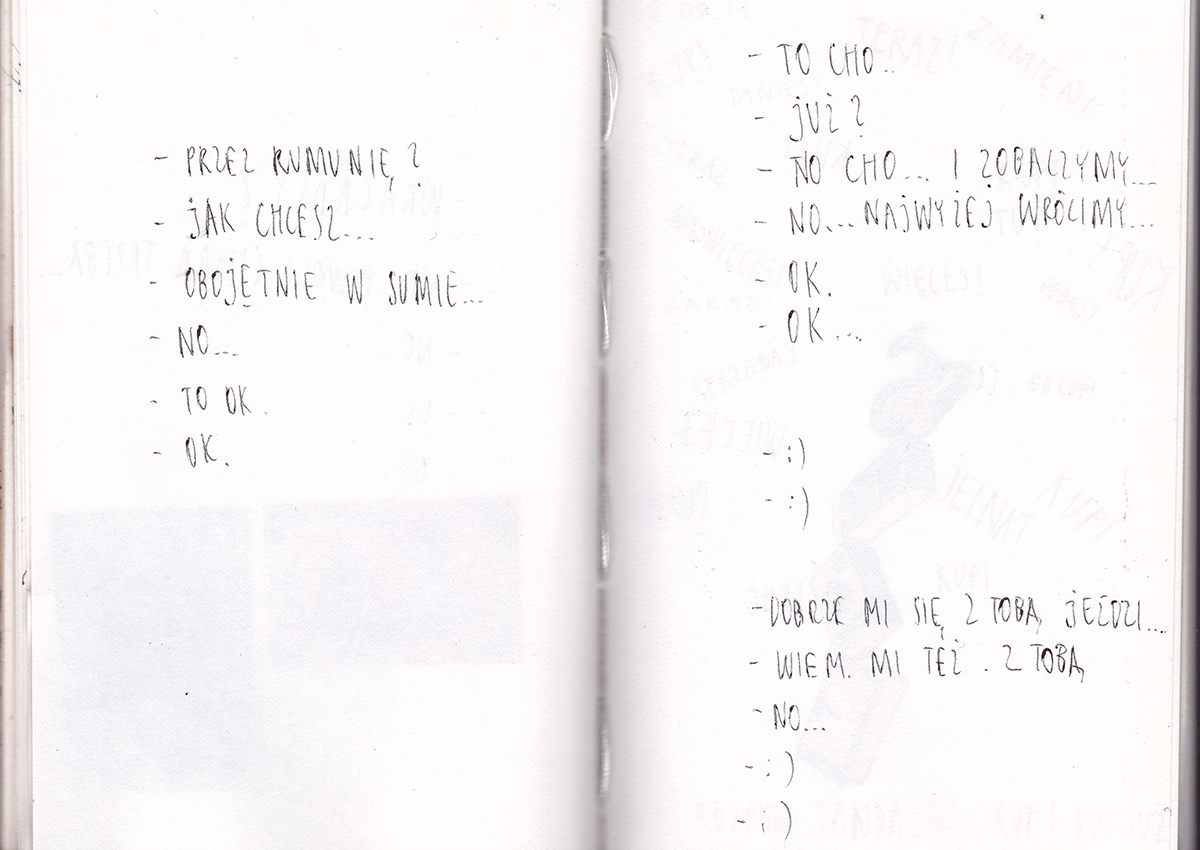 - PRZEZ RUMUNIĘ?
- JAK CHCESZ...
- OBOJĘTNIE W SUMIE...
- NO...
- TO OK.
- OK.
- TO CHO..
- JUŻ?
- NO CHO... I ZOBACZYMY...
- NO... NAJWYŻEJ WRÓCIMY...
- OK.
- OK...
- :)
- :)
- DOBRZE MI SIĘ Z TOBĄ JEŹDZI...
- WIEM. MI TEŻ. Z TOBĄ
- NO...
- :)
- ;)